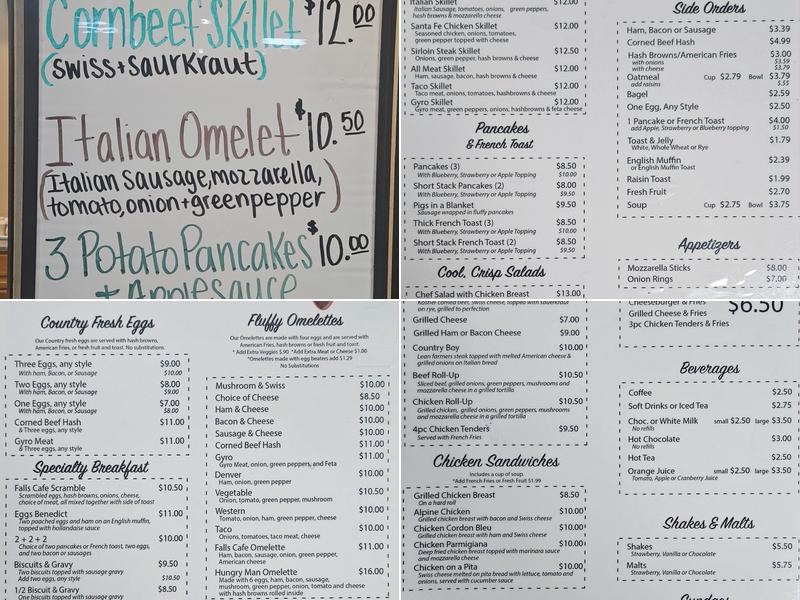 Cornbeef Skillet $12.00
(swiss+saurkraut)
Italian Omelet $10.50
(Italian Sausage, mozzarella,
tomato, onion+greenpepper)
3 Potato Pancakes $10.00
+ Applesauce
Italian Skillet $12.00
Italian Sausage, tomatoes, onions, green peppers,
hash browns & mozzarella cheese
Santa Fe Chicken Skillet $12.00
Seasoned chicken, onions, tomatoes,
green pepper topped with cheese
Sirloin Steak Skillet $12.50
Onions, green pepper, hashbrowns & cheese
All Meat Skillet $12.00
Ham, sausage, bacon, hash browns & cheese
Taco Skillet $12.00
Taco meat, onions, tomatoes, hashbrowns & cheese
Gyro Skillet $12.00
Gyro meat, green peppers, onions, hashbrowns & feta cheese
Pancakes
& French Toast
Pancakes (3) $8.50
With Blueberry, Strawberry or Apple Topping $10.00
Short Stack Pancakes (2) $8.00
With Blueberry, Strawberry or Apple Topping $9.50
Pigs in a Blanket $9.50
Sausage wrapped in fluffy pancakes
Thick French Toast (3) $8.50
With Blueberry, Strawberry or Apple Topping $10.00
Short Stack French Toast (2) $8.00
With Blueberry, Strawberry or Apple Topping $9.50
Cool, Crisp Salads
Chef Salad with Chicken Breast $13.00
Side Orders
Ham, Bacon or Sausage $3.39
Corned Beef Hash $4.99
Hash Browns/American Fries $3.00
with onions $3.59
with cheese $3.79
Oatmeal Cup $2.79 Bowl $3.79
add raisins $.55
Bagel $2.59
One Egg, Any Style $2.50
1 Pancake or French Toast $4.00
add Apple, Strawberry or Blueberry topping $1.50
Toast & Jelly $1.79
White, Whole Wheat or Rye
English Muffin $2.39
or English Muffin Toast
Raisin Toast $1.99
Fresh Fruit $2.70
Soup Cup $2.75 Bowl $3.75
Appetizers
Mozzarella Sticks $8.00
Onion Rings $7.00
Country Fresh Eggs
Our Country fresh eggs are served with hash browns,
American Fries, or fresh fruit and toast. No substitutions.
Three Eggs, any style $9.00
With ham, Bacon, or Sausage $10.00
Two Eggs, any style $8.00
With ham, Bacon, or Sausage $9.00
One Eggs, any style $7.00
With ham, Bacon, or Sausage $8.00
Corned Beef Hash $11.00
& Three eggs, any style
Gyro Meat $11.00
& Three eggs, any style
Specialty Breakfast
Falls Cafe Scramble $10.50
Scrambled eggs, hash browns, onions, cheese,
choice of meat, all mixed together with side of toast
Eggs Benedict $11.00
Two poached eggs and ham on an English muffin,
topped with hollandaise sauce
2 + 2 + 2 $10.00
Choice of two pancakes or French toast, two eggs,
and two bacon or sausages
Biscuits & Gravy $9.50
Two biscuits topped with sausage gravy
Add two eggs, any style $10.50
1/2 Biscuit & Gravy $8.50
One biscuits topped with sausage gravy
Fluffy Omelettes
Our Omelettes are made with four eggs and are served with
American Fries, hash browns or fresh fruit.
* Add Extra Veggies $.90 *Add Extra Meat or Cheese $1.00
*Omelettes made with egg beaters add $1.29
No Substitutions
Mushroom & Swiss $10.00
Choice of Cheese $8.50
Ham & Cheese $10.00
Bacon & Cheese $10.00
Sausage & Cheese $10.00
Corned Beef Hash $11.00
Gyro $11.00
Gyro Meat, onion, green peppers, and Feta
Denver $10.00
Ham, onion, green pepper
Vegetable $10.50
Onion, tomato, green pepper, mushroom
Western $10.00
Tomato, onion, ham, green pepper, cheese
Taco $10.00
Onions, tomatoes, taco meat, cheese
Falls Cafe Omelette $11.00
Ham, bacon, sausage, onion, green pepper,
American cheese
Hungry Man Omelette $16.00
Made with 6 eggs, ham, bacon, sausage,
mushroom, green pepper, onion, tomato and cheese
with hash browns rolled inside
Kosher corned beef, Swiss cheese, topped with sauerkraut
on rye, grilled to perfection
Grilled Cheese $7.00
Grilled Ham or Bacon Cheese $9.00
Country Boy $10.00
Lean farmers steak topped with melted American cheese &
grilled onions on Italian bread
Beef Roll-Up $10.50
Sliced beef, grilled onions, green peppers, mushrooms and
mozzarella cheese in a grilled tortilla
Chicken Roll-Up $10.50
Grilled chicken, grilled onions, green peppers, mushrooms
and mozzarella cheese in a grilled tortilla
4pc Chicken Tenders $9.50
Served with French Fries
Chicken Sandwiches
Includes a cup of soup.
*Add French Fries or Fresh Fruit $1.99
Grilled Chicken Breast $8.50
On a hard roll
Alpine Chicken $10.00
Grilled chicken breast with bacon and Swiss cheese
Chicken Cordon Bleu $10.00
Grilled chicken breast with ham and Swiss cheese
Chicken Parmigiana $10.00
Deep fried chicken breast topped with marinara sauce
and mozzarella cheese
Chicken on a Pita $10.00
Swiss cheese melted on pita bread with lettuce, tomato and
onions, served with cucumber sauce
Cheeseburger & Fries $6.50
Grilled Cheese & Fries
3pc Chicken Tenders & Fries
Beverages
Coffee $2.50
Soft Drinks or Iced Tea $2.75
Choc. or White Milk small $2.50 large $3.50
No refills
Hot Chocolate $3.00
No refills
Hot Tea $2.50
Orange Juice small $2.50 large $3.50
Tomato, Apple or Cranberry Juice
Shakes & Malts
Shakes $5.50
Strawberry, Vanilla or Chocolate
Malts $5.75
Strawberry, Vanilla or Chocolate
Sundaes